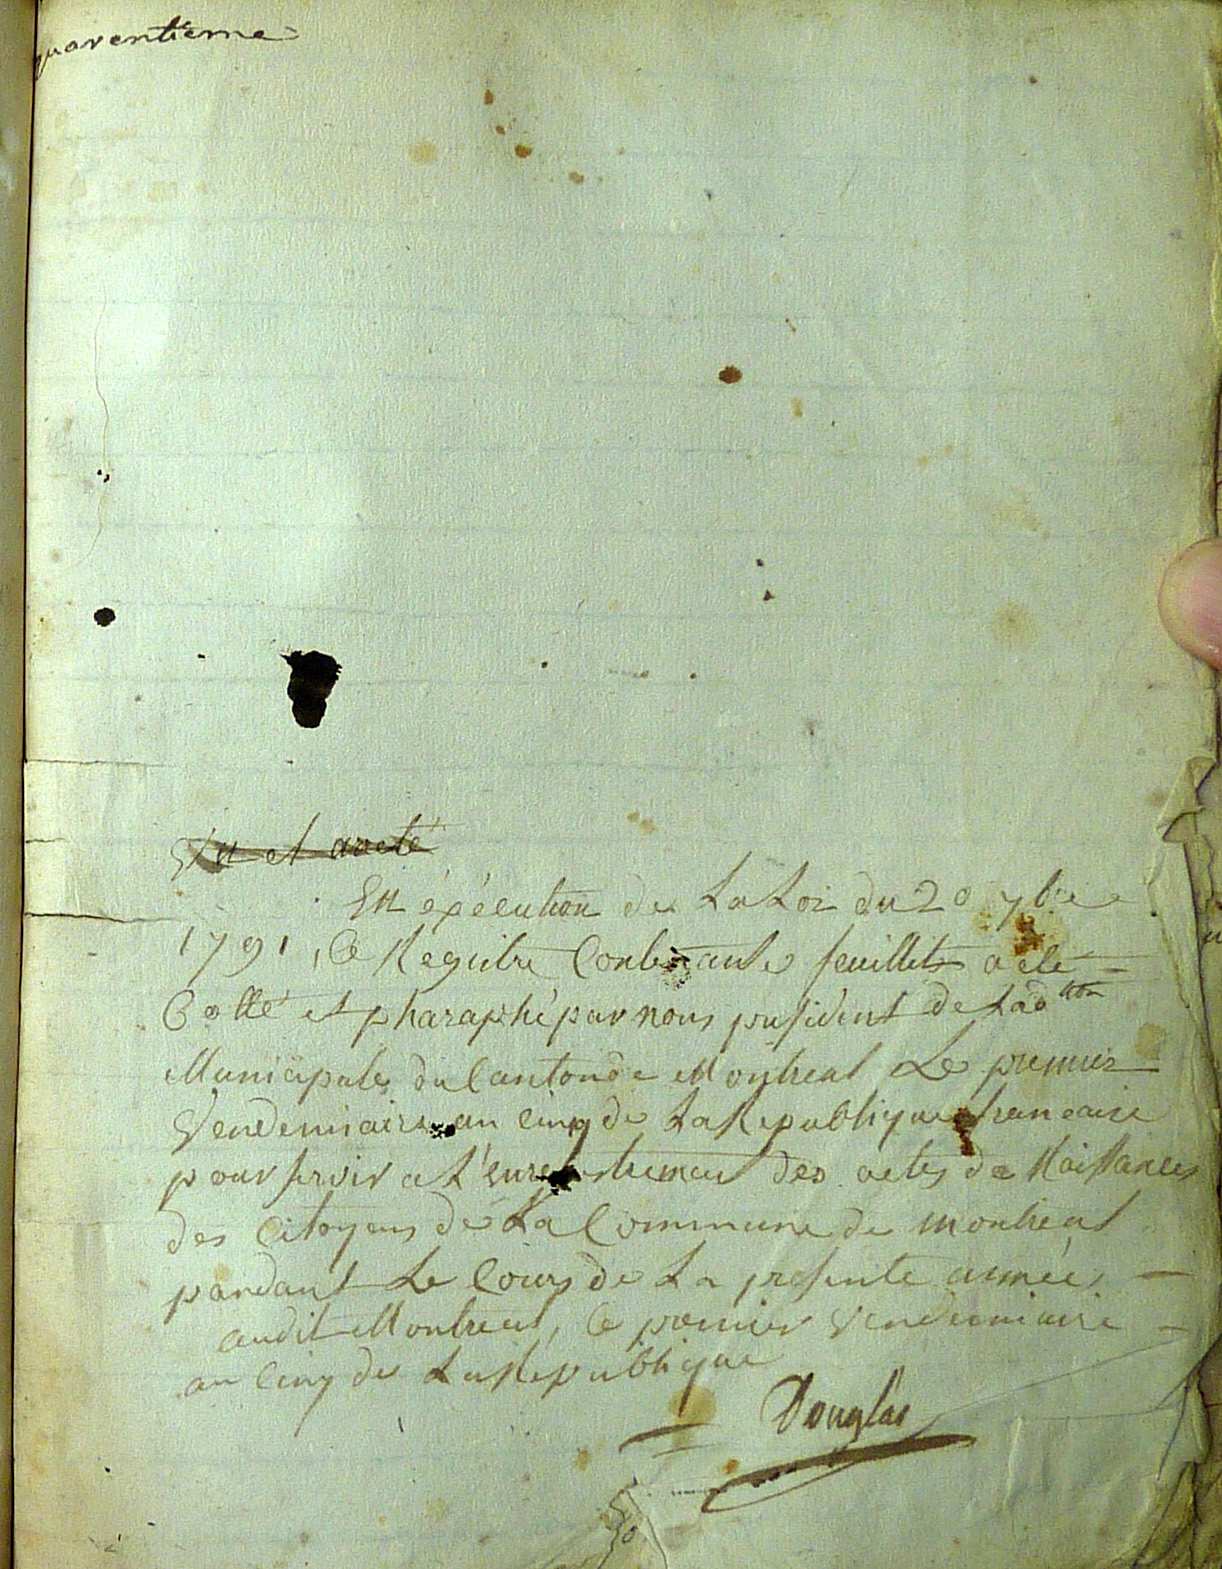 quarentieme
Vu et areté
En éxécution de La Loi du 20 7bre
1791, Ce Registre Contenant feuillets a eté
Cotté et pharaphé par nous president de Lad^tion
Municipale du Canton de Montreal Le premier
Vendemiaire an cinq de La Republique francaise
pour servir a L'enregistrement des actes de Naissances
des Citoyens de La Commune de Montreal
pendant Le Cours de La presente année,
audit Montreal, Ce premier Vendemiaire
an Cinq de La Republique
Douglas